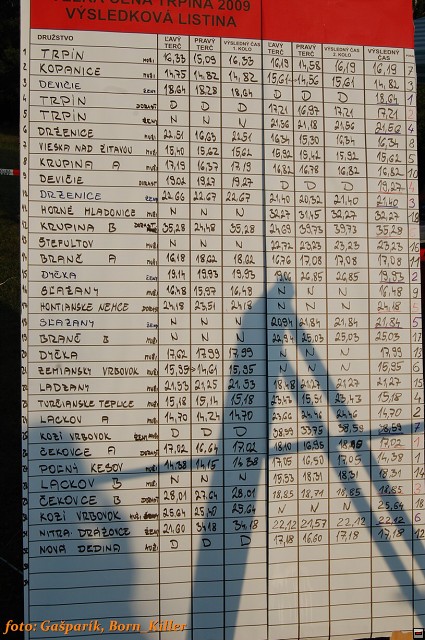 CENA TRPÍNA 2009
VÝSLEDKOVÁ LISTINA
DRUŽSTVO ĽAVÝ TERČ PRAVÝ TERČ VÝSLEDNÝ ČAS 1. KOLO ĽAVÝ TERČ PRAVÝ TERČ VÝSLEDNÝ ČAS 2. KOLO VÝSLEDNÝ ČAS
TRPÍN MUŽI 16,33 15,09 16,33 16,19 14,58 16,19 16,19 7
KOPANICE MUŽI 14,75 14,82 14,82 15,61 14,56 15,61 14,82 3
DEVIČIE 18,64 18,28 18,64 D D D 18,64 1
TRPÍN D D D 17,21 16,97 17,21 17,21 2
TRPÍN ŽENY N N N 21,56 21,18 21,56 21,56 4
DRŽENICE MUŽI 22,51 16,63 22,51 16,34 15,30 16,34 16,34 8
VIESKA NAD ŽITAVOU MUŽI 15,40 15,62 15,62 15,92 15,42 15,92 15,62 5
KRUPINA A MUŽI 17,19 16,37 17,19 16,82 16,78 16,82 16,82 10
DEVIČIE 19,02 19,27 19,27 D D D 19,27 4
DRŽENICE ŽENY 22,66 22,67 22,67 21,40 20,32 21,40 21,40 3
HORNÉ MLADONICE MUŽI N N N 32,27 31,45 32,27 32,27
KRUPINA B 35,28 24,48 35,28 24,69 39,73 39,73 35,28
ŠTEFULTOV MUŽI N N N 22,72 23,23 23,23 23,23 16
BRANČ A MUŽI 16,18 18,62 18,62 16,76 17,08 17,08 17,08 11
DYČKA ŽENY 19,14 19,93 19,93 26,85 26,85 19,93 2
SĽAŽANY MUŽI N N 16,48 N N N 16,48 9
HONTIANSKE NEMCE 24,18 23,51 24,18 N N N 24,18
SĽAŽANY ŽENY N N N 20,94 21,84 21,84 21,84 5
BRANČ B MUŽI N N N 22,94 25,03 25,03 25,03 17
DYČKA MUŽI 17,62 17,99 17,99 N N N 17,99 13
ŽEMIANSKY VRBOVOK MUŽI 15,95 14,61 15,95 N N N 15,95 6
LADZANY MUŽI 21,53 21,25 21,53 18,48 21,27 21,27 21,27 15
TURČIANSKE TEPLICE MUŽI 15,18 15,14 15,18 23,43 15,31 23,43 15,18 4
LACKOV A MUŽI 14,70 14,24 14,70 23,66 24,46 24,46 14,70 2
KOZÍ VRBOVOK D D D 38,59 33,75 38,59 38,59 7
ČEKOVCE A 17,02 16,64 17,02 18,10 16,96 17,02 1
PODNÝ KESOV MUŽI 14,38 14,15 14,38 17,05 16,50 17,05 14,38 1
LACKOV B MUŽI N N N 15,53 18,31 18,31 18,31 14
ČEKOVCE B 28,01 27,64 28,01 18,85 18,71 18,85 18,85 3
KOZÍ VRBOVOK MUŽI 25,64 25,40 25,64 N N N 25,64 18
NITRA DRÁŽOVCE ŽENY 21,60 34,18 34,18 22,12 21,57 22,12 22,12 6
NOVÁ DEDINA MUŽI D D D 17,18 16,60 17,18 17,18 12
foto: Gašparík, Born_Killer